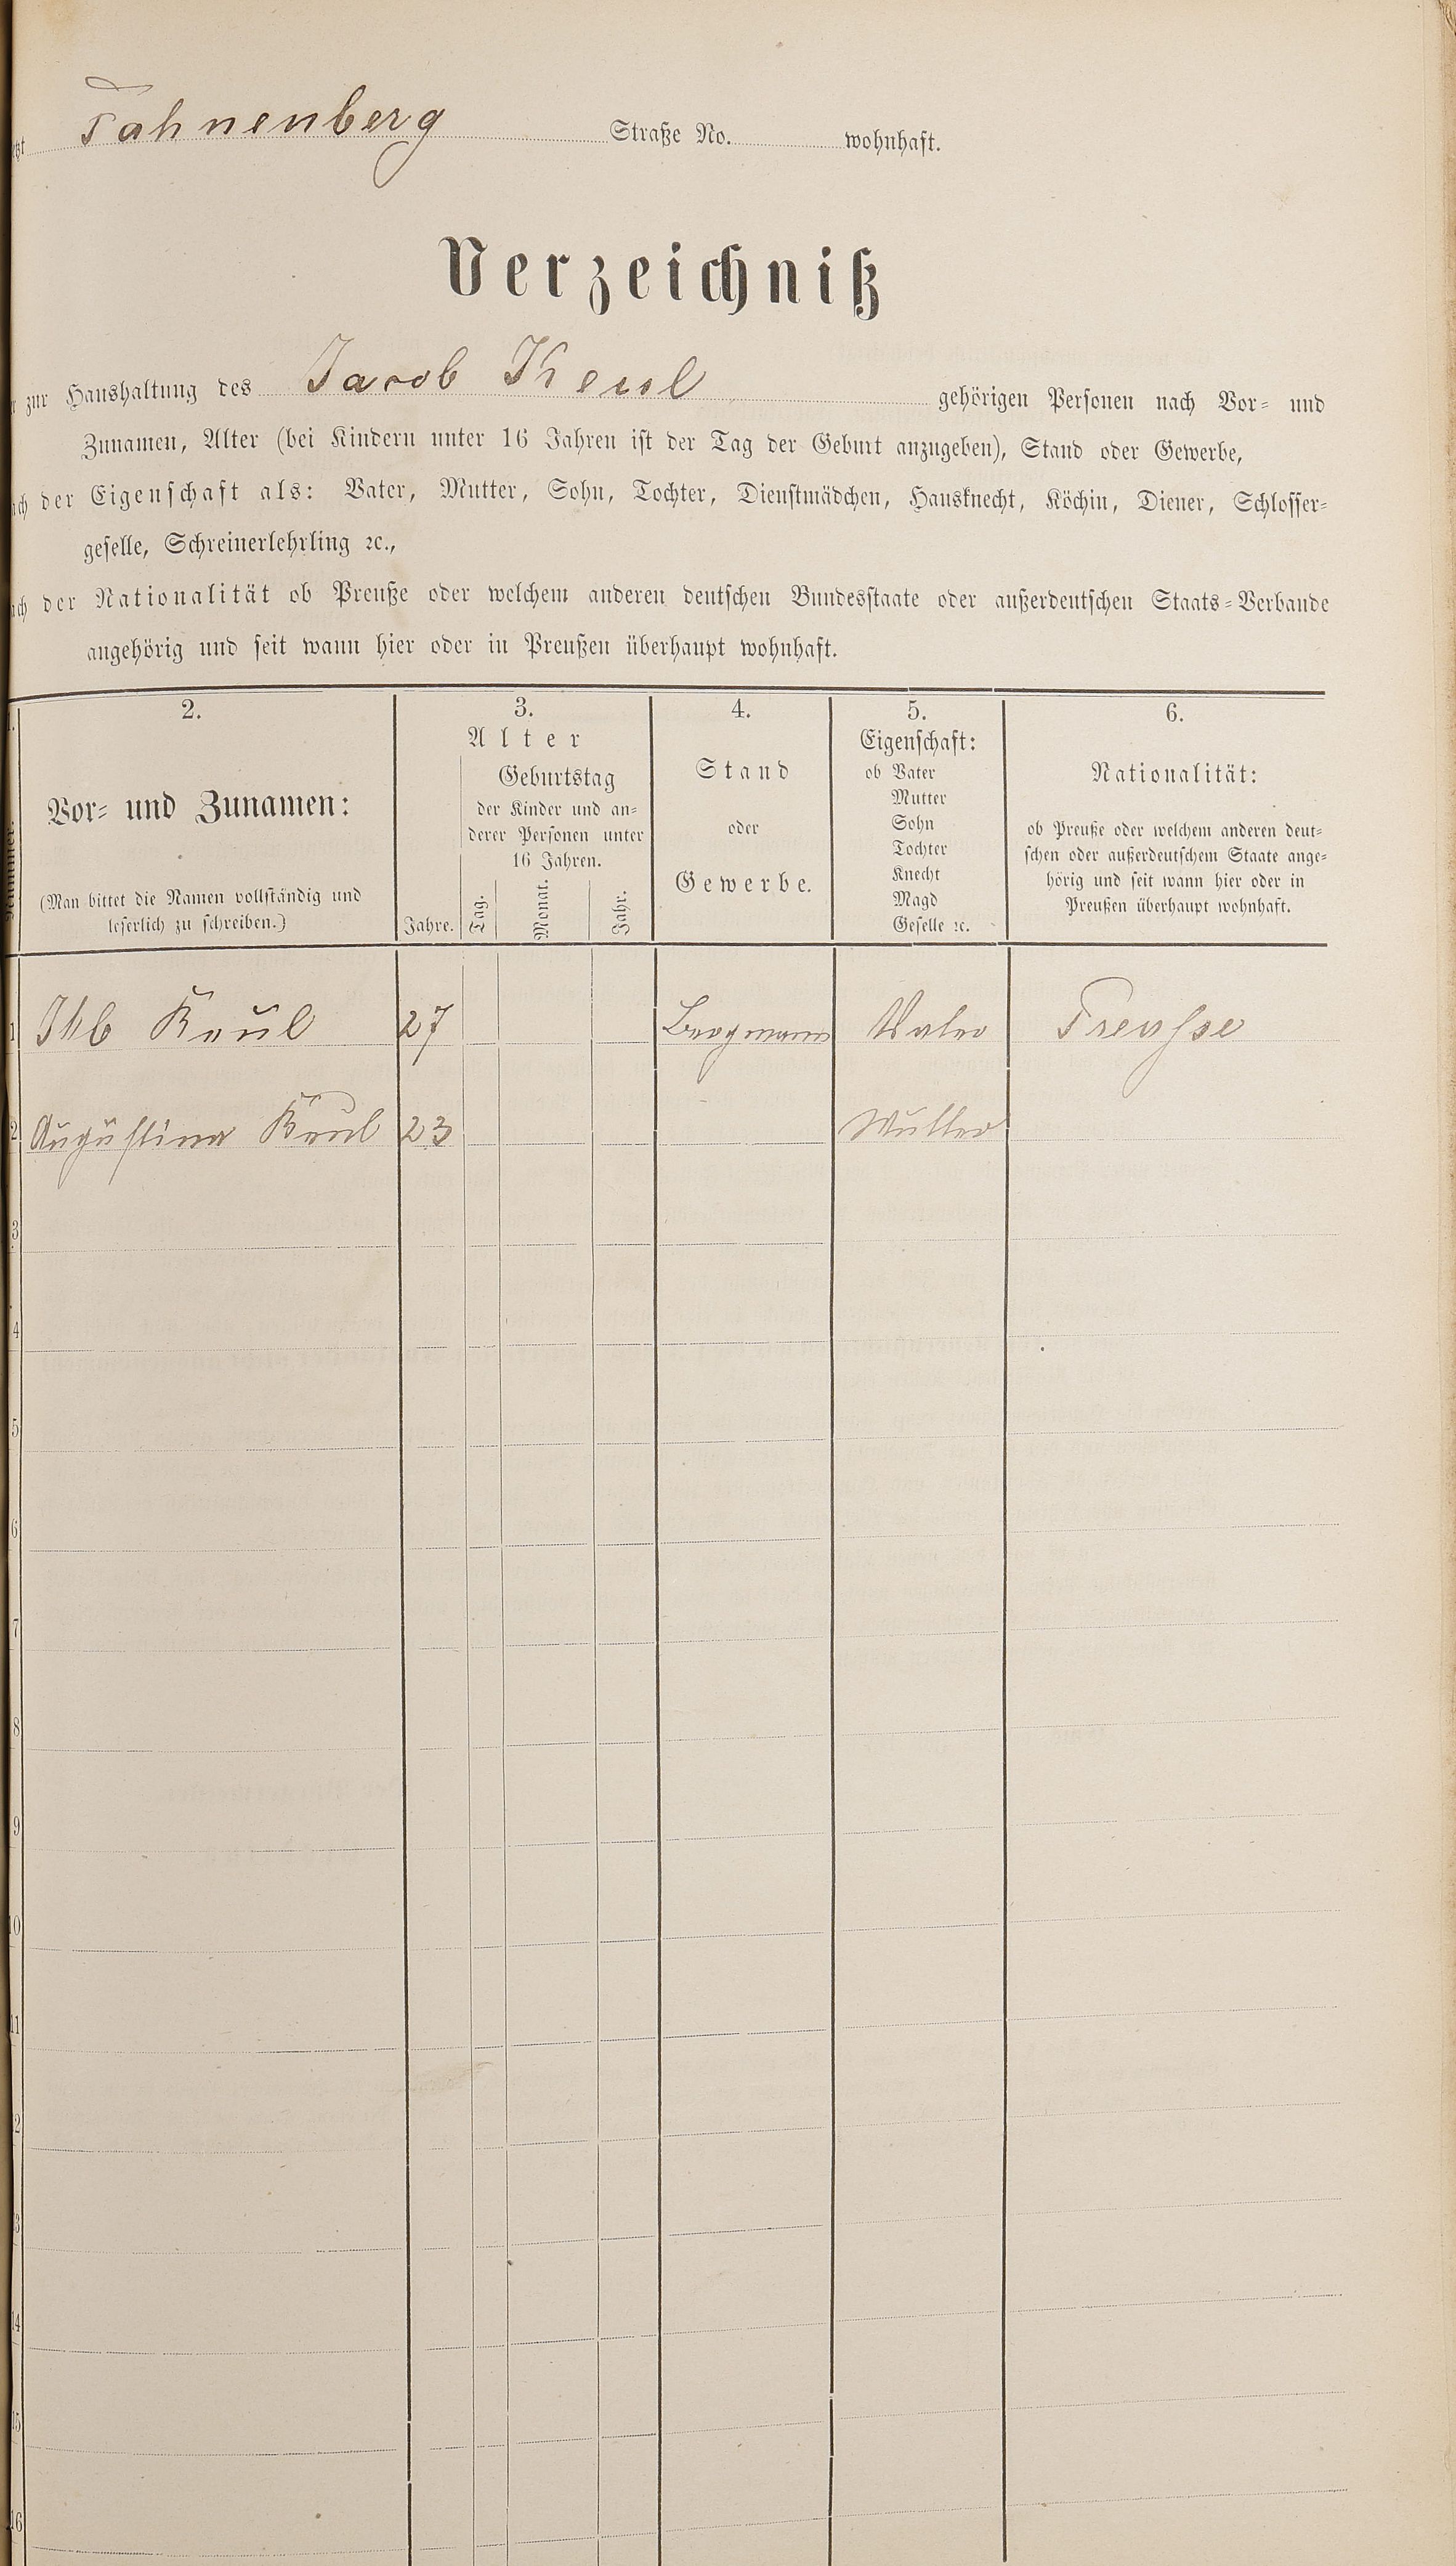 Fahnenberg Straße No. wohnhaft.
Verzeichniß
zur Haushaltung des Jacob Keul gehörigen Personen nach Vor- und
Zunamen, Alter (bei Kindern unter 16 Jahren ist der Tag der Geburt anzugeben), Stand oder Gewerbe,
der Eigenschaft als: Vater, Mutter, Sohn, Tochter, Dienstmädchen, Hausknecht, Köchin, Diener, Schlosser-
geselle, Schreinerlehrling ꝛc.,
der Nationalität ob Preuße oder welchem anderen deutschen Bundesstaate oder außerdeutschen Staats-Verbande
angehörig und seit wann hier oder in Preußen überhaupt wohnhaft.
2. 3. 4. 5. 6.
Vor- und Zunamen:
(Man bittet die Namen vollständig und
leserlich zu schreiben.)
Alter
Jahre.
Geburtstag
der Kinder und an-
derer Personen unter
16 Jahren.
Tag. Monat. Jahr.
Stand
oder
Gewerbe.
Eigenschaft:
ob Vater
Mutter
Sohn
Tochter
Knecht
Magd
Geselle ꝛc.
Nationalität:
ob Preuße oder welchem anderen deut-
schen oder außerdeutschem Staate ange-
hörig und seit wann hier oder in
Preußen überhaupt wohnhaft.
1 Jkb Keul 27 Bergmann Vater Preusse
2 Augustina Keul 23 Mutter
3
4
5
6
7
8
9
10
11
12
13
14
15
16